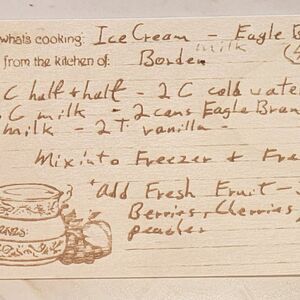 whats cooking: Ice Cream - Eagle B
from the kitchen of: Borden milk
C half & half - 2 C cold water
C milk - 2 cans Eagle Bran
milk - 2 T. vanilla -
Mix into Freezer & Fre
* Add Fresh Fruit -
Berries, Cherries,
peaches